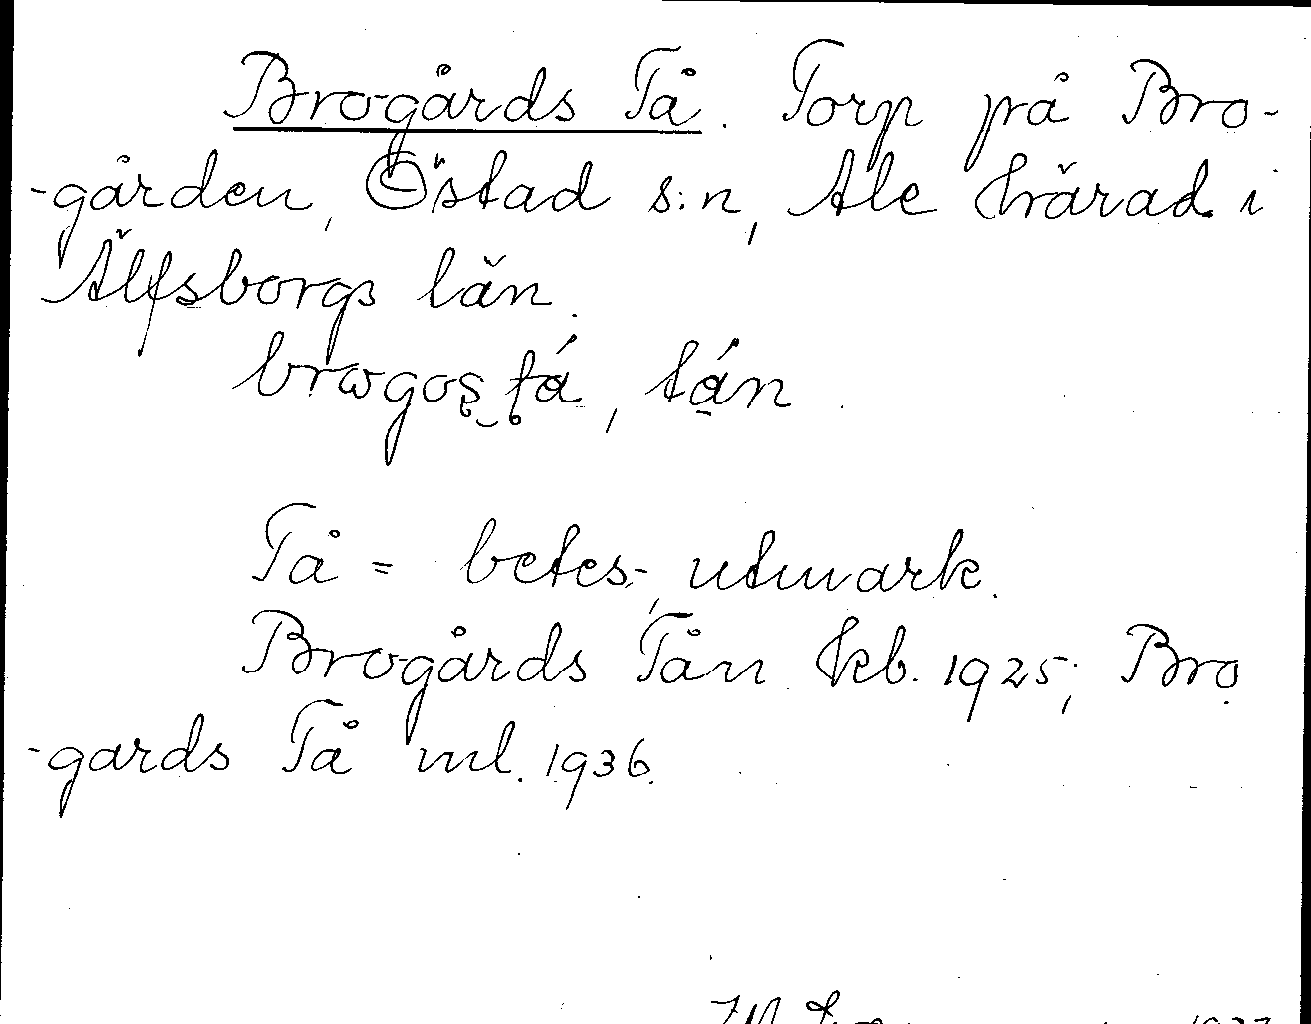 Brogårds Tå. Torp på Bro-
-gården, Östad s:n, Ale härad i
Älfsborgs län.
brωgoş tá, tán
Tå = betes-, utmark.
Brogårds Tån kb. 1925; Bro
-gards Tå ml. 1936.